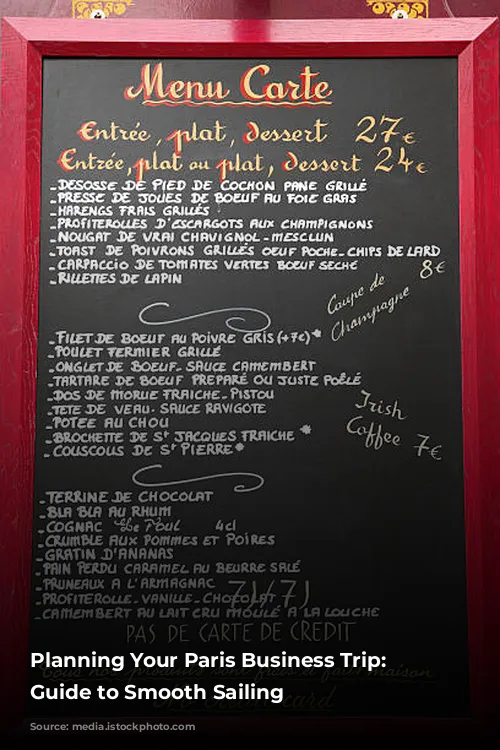 Menu Carte
Entrée, plat, dessert 27€
Entrée, plat ou plat, dessert 24€
-DESOSSE DE PIED DE COCHON PANE GRILLÉ
-PRESSE DE JOUES DE BOEUF AU FOIE GRAS
-HARENGS FRAIS GRILLÉS
-PROFITEROLLES D'ESCARGOTS AUX CHAMPIGNONS
-NOUGAT DE VRAI CHAVIGNOL-MESCLUN
-TOAST DE POIVRONS GRILLÉS OEUF POCHE-CHIPS DE LARD
-CARPACCIO DE TOMATES VERTES BOEUF SECHÉ
-RILLETTES DE LAPIN
Coupe de Champagne 8€
-FILET DE BOEUF AU POIVRE GRIS (+7€)*
-POULET FERMIER GRILLÉ
-ONGLET DE BOEUF-SAUCE CAMEMBERT
-TARTARE DE BOEUF PREPARÉ OU JUSTE POÊLÉ
-DOS DE MORUE FRAICHE-PISTOU
-TETE DE VEAU-SAUCE RAVIGOTE
-POTEE AU CHOU
-BROCHETTE DE St JACQUES FRAICHE *
-COUSCOUS DE St PIERRE*
Irish
Coffee 7€
-TERRINE DE CHOCOLAT
-BLA BLA AU RHUM
-COGNAC 4cl
-CRUMBLE AUX POMMES ET POIRES
-GRATIN D'ANANAS
-PAIN PERDU CARAMEL AU BEURRE SALÉ
-PRUNEAUX A L'ARMAGNAC
-PROFITEROLLE-VANILLE-CHOCOLAT
-CAMEMBERT AU LAIT CRU MOULÉ A LA LOUCHE
PAS DE CARTE DE CREDIT
Planning Your Paris Business Trip:
Guide to Smooth Sailing
Source: media.istockphoto.com